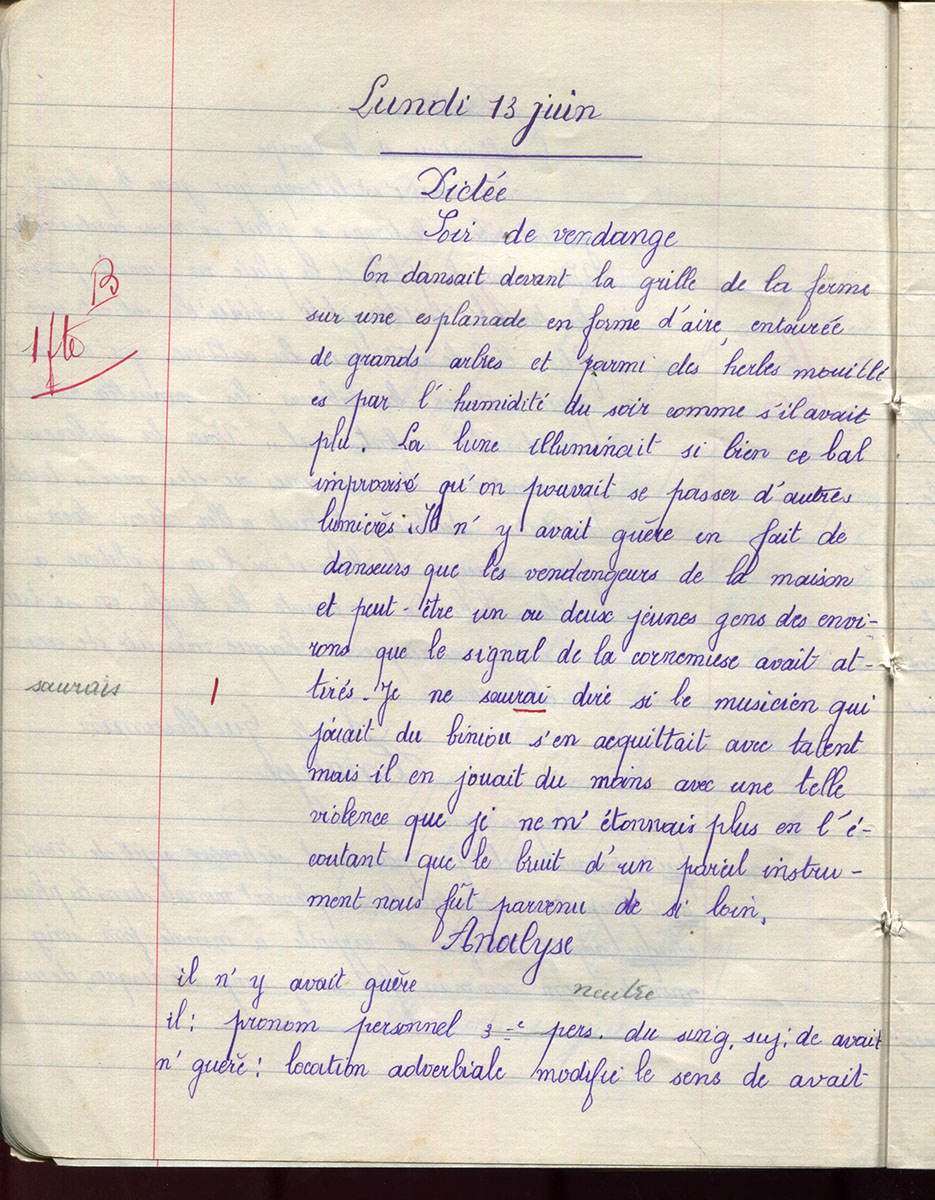 Lundi 13 juin
Dictée
Soir de vendange
B
1 fte
On dansait devant la grille de la ferme
sur une esplanade en forme d'aire entourée
de grands arbres et parmi des herbes mouillé
es par l'humidité du soir comme s'il avait
plu. La lune illuminait si bien ce bal
improvisé qu'on pouvait se passer d'autres
lumières. Il n'y avait guère en fait de
danseurs que les vendangeurs de la maison
et peut-être un ou deux jeunes gens des envi-
rons que le signal de la cornemuse avait at-
saurais 1 tirés. Je ne saurai dire si le musicien qui
jouait du biniou s'en acquittait avec talent
mais il en jouait du moins avec une telle
violence que je ne m'étonnais plus en l'é-
coutant que le bruit d'un pareil instru-
ment nous fût parvenu de si loin.
Analyse
il n'y avait guère
neutre
il: pronom personnel 3e pers. du sing. suj. de avait
n'guère: location adverbiale modifie le sens de avait